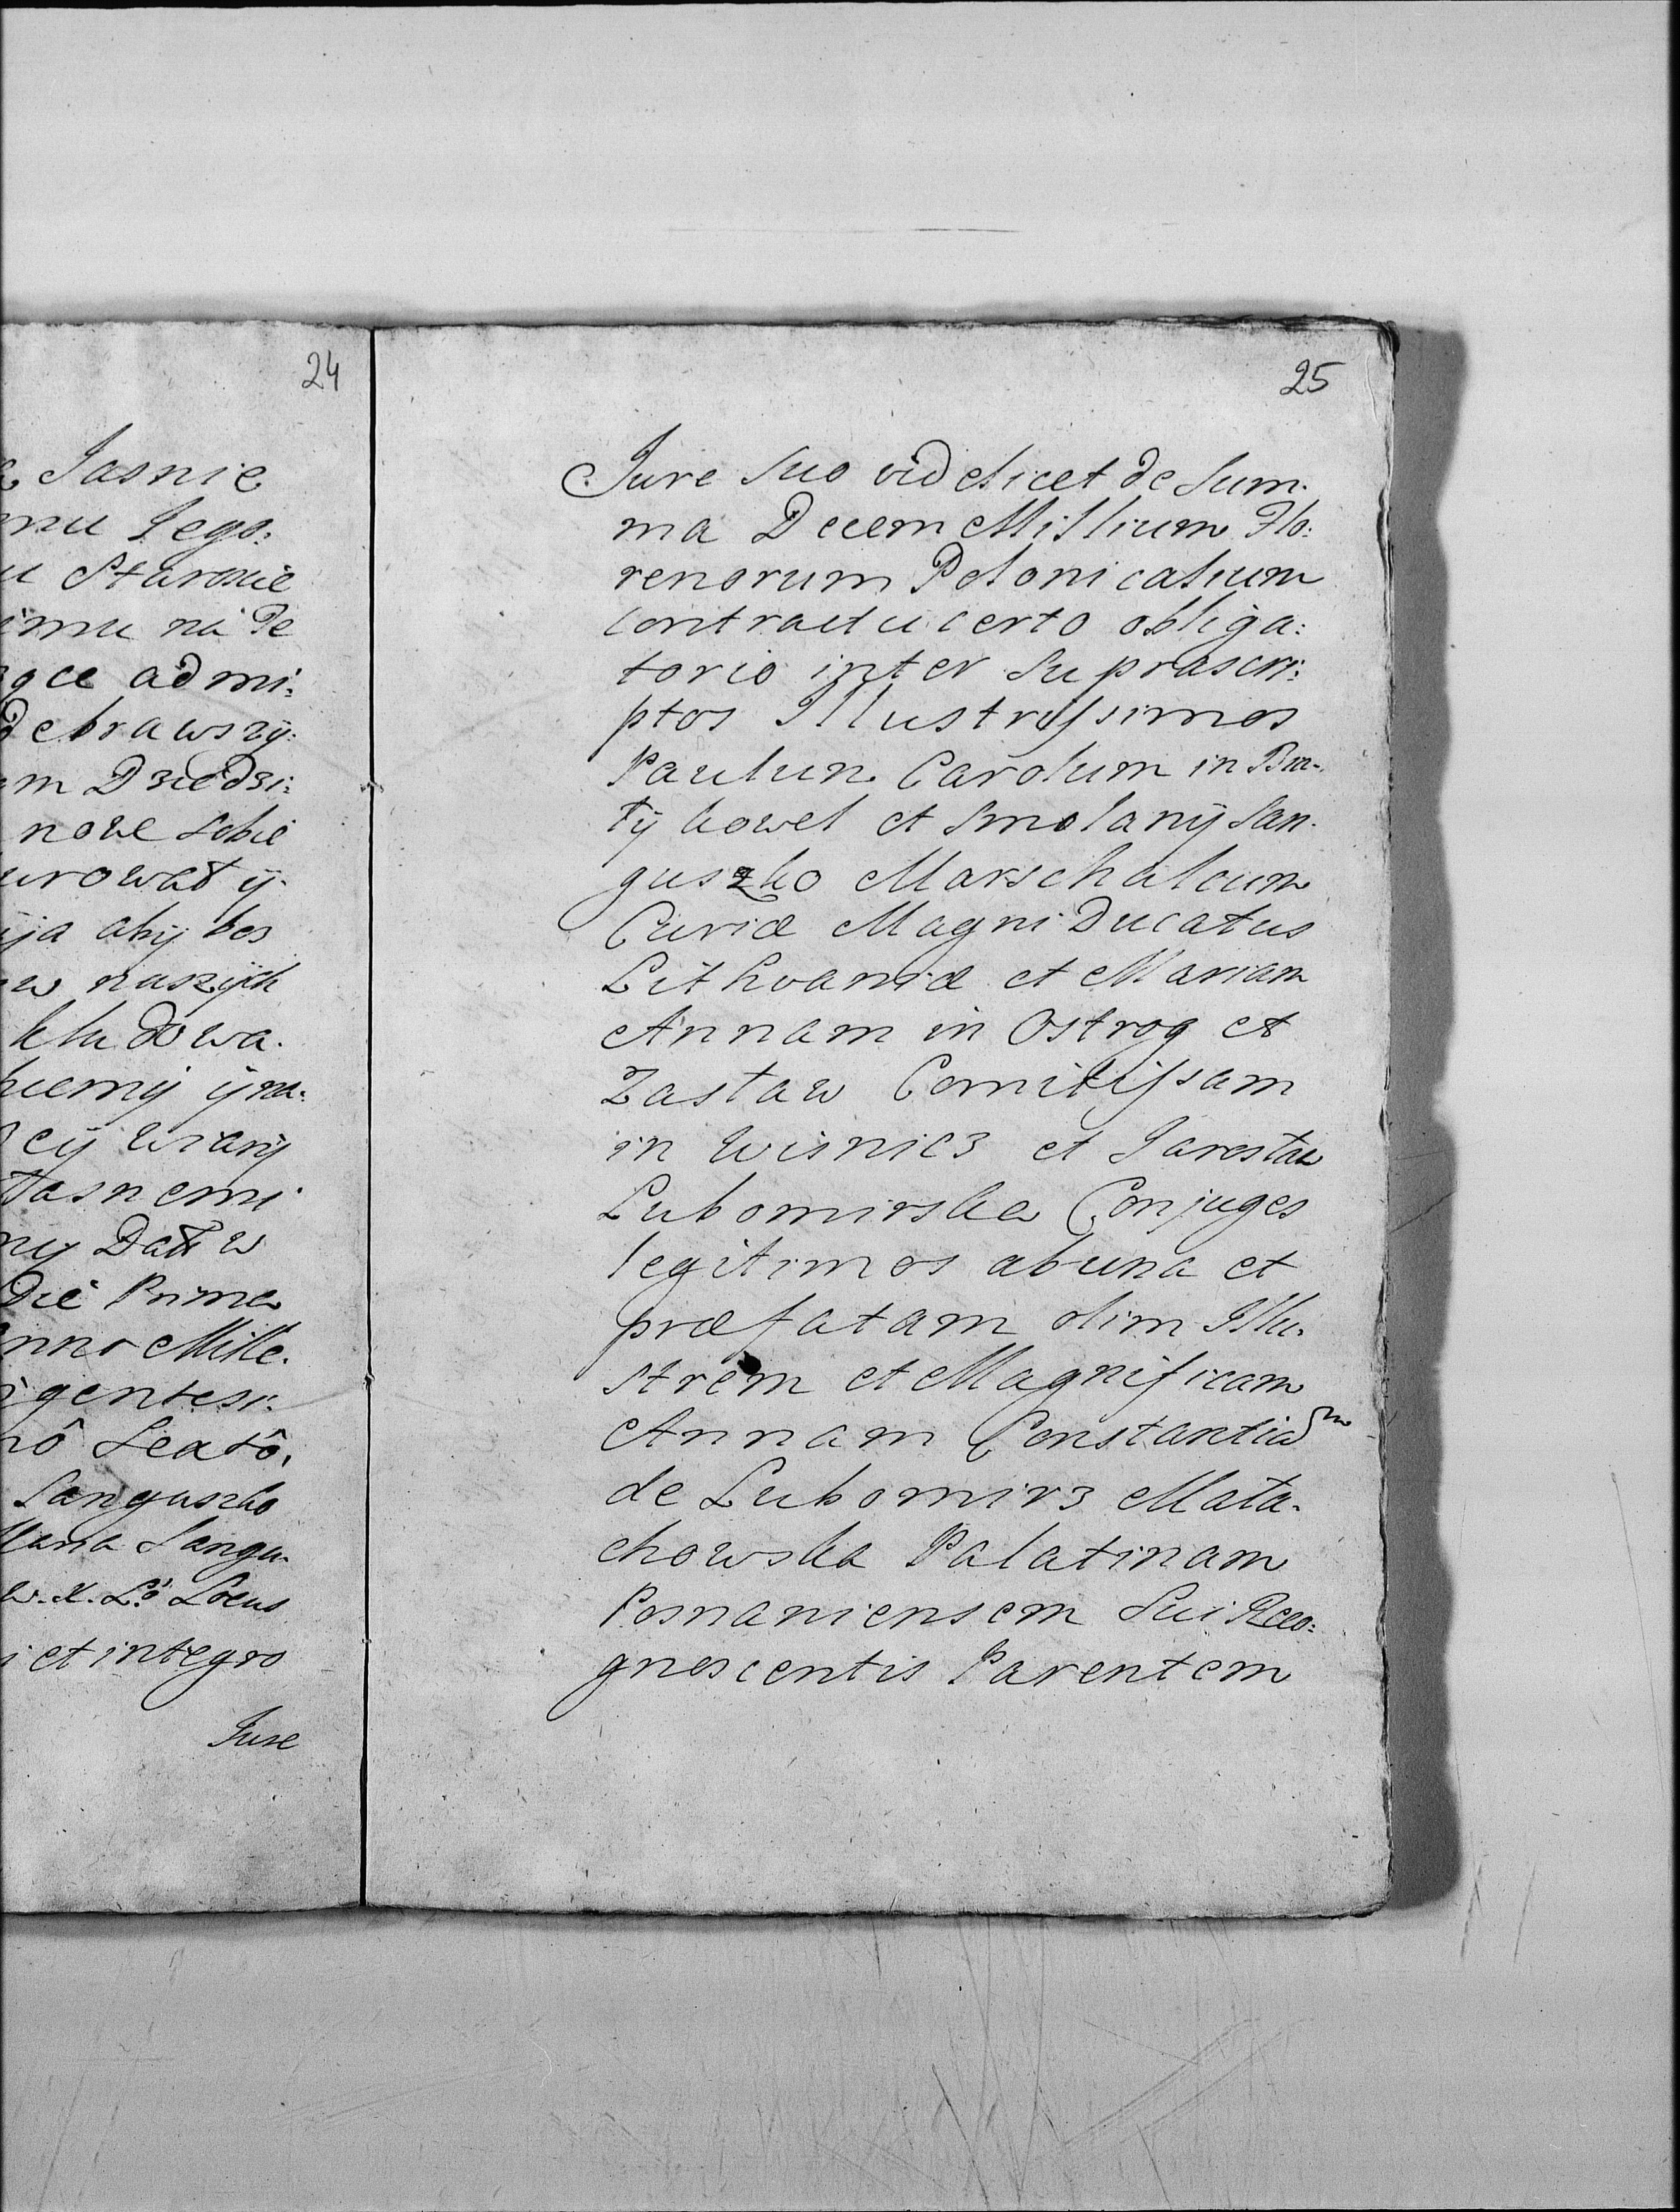 24
Jasnie
mu Jego:
u Staroscie
imu na Te
ące admi:
debrawszÿ:
m Dziedzi:
nowe sobie
urowatÿ
ija abÿ bes
w naszÿch
kludowa.
cÿ wianÿ
Tasnemi
nÿ Datt w
Die Prima
nno Mille.
igentesi:
nô Sextô.
Sanguszko
Sangu-
w. X. L. Lô Locus
i et integro
Jure
25
Jure Suo videlicet de Sum.
ma Decem Millium Flo:
renorum Polonicalium
Contractu certo obliga:
torio inter Suprascri:
ptos Illustrissimos
Paulum Carolum in Bia-
łÿ kowel et Smolanÿ San.
guszko Marschalcum
Curiæ Magni Ducatus
Lithvaniæ et Mariam
Annam in Ostrog et
Zasław Comitissam
in Wisnicz et Jarosław
Lubomirska Conjuges
legitimos ab una et
præfatam olim Illu.
strem et Magnificam
Annam Constantiam
de Lubomirz Mała.
chowska Palatinam
Posnaniensem Sui Reco:
gnoscentis Parentem